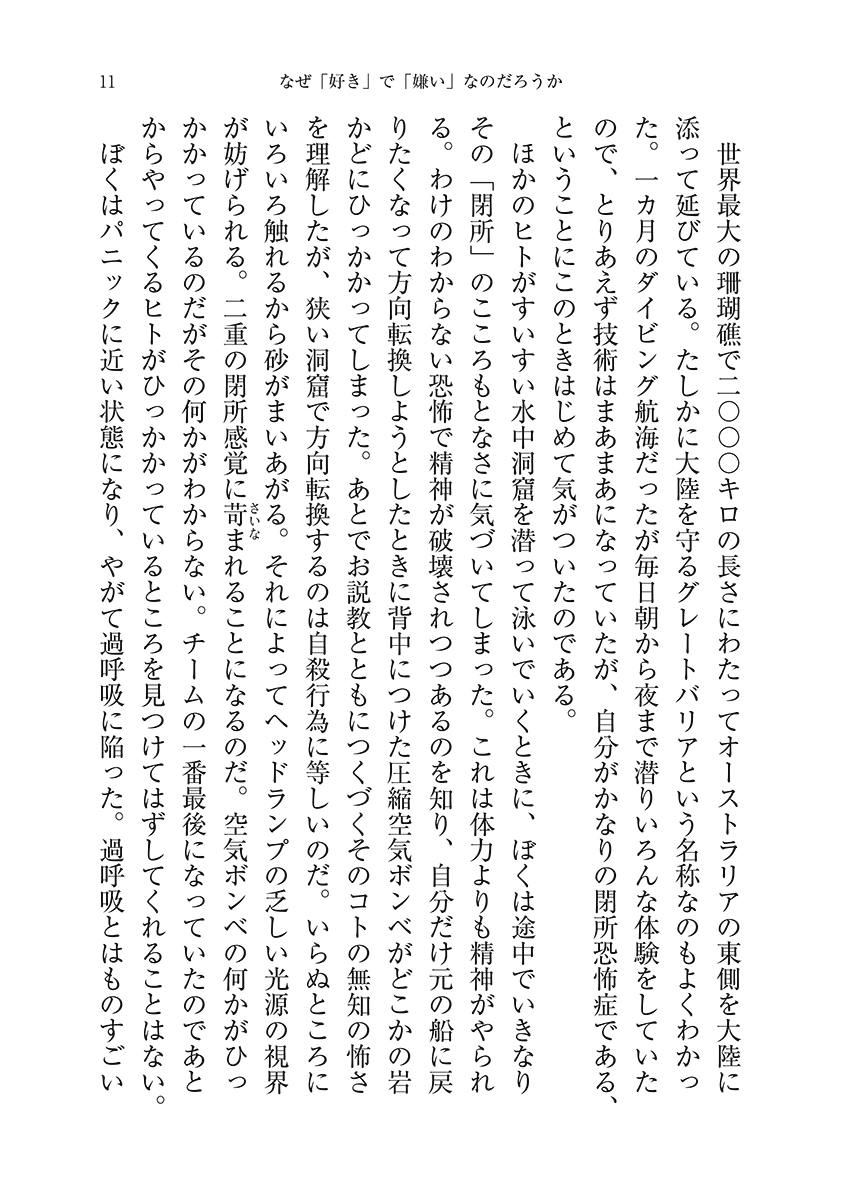 11
なぜ「好き」で「嫌い」なのだろうか
世界最大の珊瑚礁で二〇〇〇キロの長さにわたってオーストラリアの東側を大陸に
添って延びている。たしかに大陸を守るグレートバリアという名称なのもよくわかっ
た。一カ月のダイビング航海だったが毎日朝から夜まで潜りいろんな体験をしていた
ので、とりあえず技術はまあまあになっていたが、自分がかなりの閉所恐怖症である、
ということにこのときはじめて気がついたのである。
ほかのヒトがすいすい水中洞窟を潜って泳いでいくときに、ぼくは途中でいきなり
その「閉所」のこころもとなさに気づいてしまった。これは体力よりも精神がやられ
る。わけのわからない恐怖で精神が破壊されつつあるのを知り、自分だけ元の船に戻
りたくなって方向転換しようとしたときに背中につけた圧縮空気ボンベがどこかの岩
かどにひっかかってしまった。あとでお説教とともにつくづくそのコトの無知の怖さ
を理解したが、狭い洞窟で方向転換するのは自殺行為に等しいのだ。いらぬところに
いろいろ触れるから砂がまいあがる。それによってヘッドランプの乏しい光源の視界
が妨げられる。二重の閉所感覚に苛まれることになるのだ。空気ボンベの何かがひっ
さいな
かかっているのだがその何かがわからない。チームの一番最後になっていたのであと
からやってくるヒトがひっかかっているところを見つけてはずしてくれることはない。
ぼくはパニックに近い状態になり、やがて過呼吸に陥った。過呼吸とはものすごい